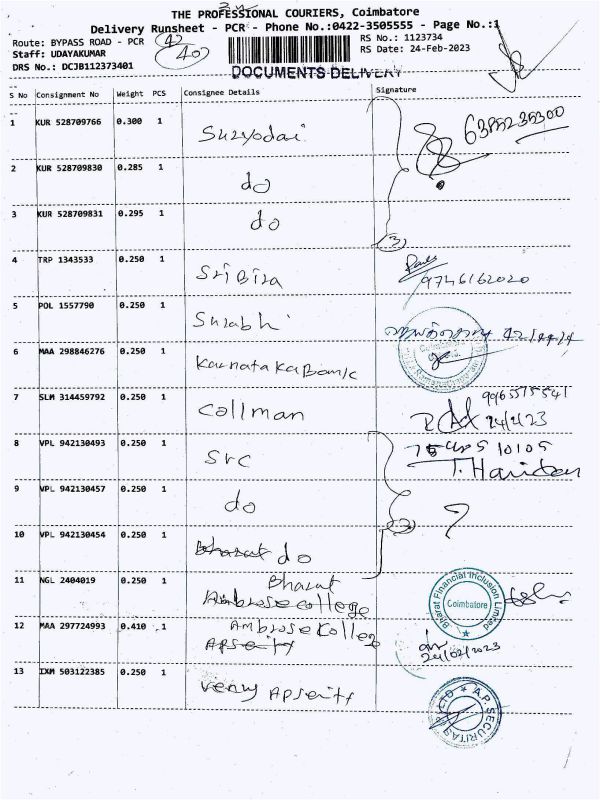 THE PROFESSIONAL COURIERS, Coimbatore
Delivery Runsheet - PCR - Phone No.:0422-3505555 - Page No.:1
Route: BYPASS ROAD - PCR
Staff: UDAYAKUMAR
DRS No.: DCJB112373401
RS No.: 1123734
RS Date: 24-Feb-2023
42
40
DOCUMENTS DELIVERY
S No Consignment No Weight PCS Consignee Details Signature
1 KUR 528709766 0.300 1 Suryodai 6385235300
2 KUR 528709830 0.285 1 do
3 KUR 528709831 0.295 1 do (3)
4 TRP 1343533 0.250 1 Sri Bira 9746162020
5 POL 1557790 0.250 1 Surabhi
6 MAA 298846276 0.250 1 Karnataka Bank Coimbatore
7 SLM 314459792 0.250 1 Collman 9965515541
24/2/23
8 VPL 942130493 0.250 1 Src 10105
T. Haridan
9 VPL 942130457 0.250 1 do
10 VPL 942130454 0.250 1 Bharat do (3)
11 NGL 2404019 0.250 1 Bharat
Ambrose college
Bharat Financial Inclusion Limited
Coimbatore
12 MAA 297724993 0.410 1 Ambrose Kollege
Apserity
24/02/2023
13 IXM 503122385 0.250 1 Apserity
A.P. SECURITAS LTD